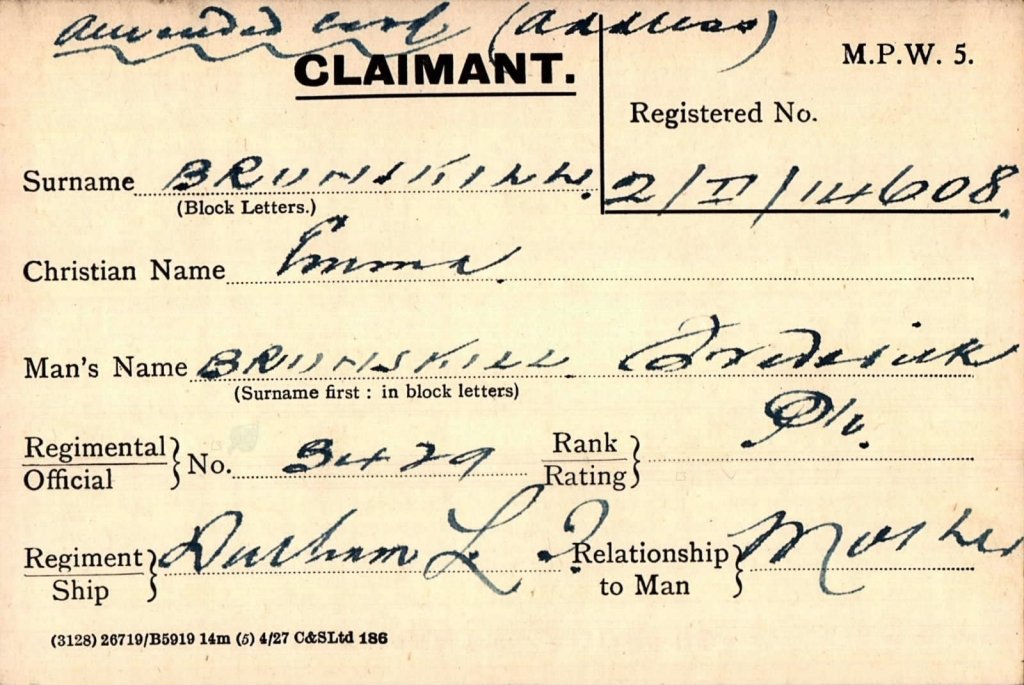 amended card (Address)
CLAIMANT.
M.P.W. 5.
Registered No.
2/II/14608.
Surname BRUNSKILL.
(Block Letters.)
Christian Name Emma.
Man's Name BRUNSKILL. Frederick
(Surname first : in block letters)
Regimental Official No. 3479
Rank Rating Ptv.
Regiment Ship Durham L. I.
Relationship to Man Mother
(3128) 26719/B5919 14m (5) 4/27 C&SLtd 186